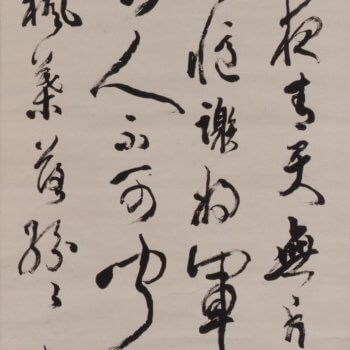 夜青天無
憶謝將軍
人不可聞
楓葉落紛々